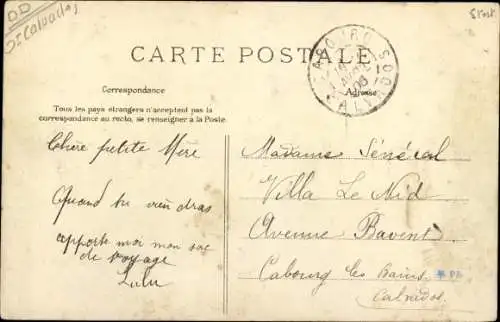 DD
Calvados
CARTE POSTALE
CABOURG
CALVADOS
Correspondance
Adresse
Tous les pays étrangers n'acceptent pas la
correspondance au recto, se renseigner à la Poste.
Chère petite Mère
Quand tu viendras
apporte moi mon sac
de voyage
Lulu
Madame Sénécal
Villa Le Nid
Avenue Bavent
Cabourg les Bains
Calvados